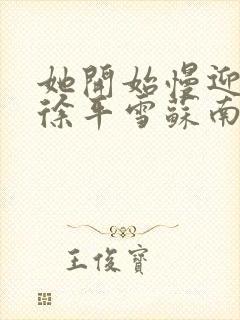 她開始慢迎
徐平雪蘇南
王俊寶